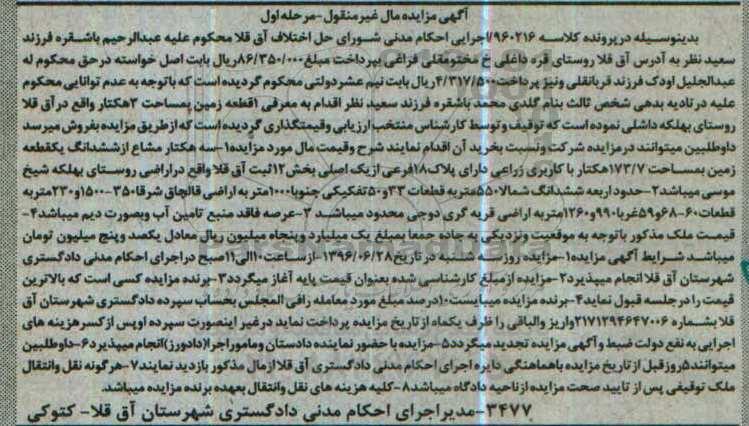 آگهی مزایده مال غیرمنقول -مرحله اول
بدینوسیله درپرونده کلاسه ۹۶۰۲۱۶/اجرایی احکام مدنی شورای حل اختلاف آق قلا محکوم علیه عبدالرحیم باشقره فرزند
سعید نظر به آدرس آق قلا روستای قره داغلی خ مختومقلی فراغی بپرداخت مبلغ۸۶/۳۵۰/۰۰۰ریال بابت اصل خواسته درحق محکوم له
عبدالجلیل اودک فرزند قربانقلی ونیز پرداخت۴/۳۱۷/۵۰۰ریال بابت نیم عشردولتی محکوم گردیده است که باتوجه به عدم توانایی محکوم
علیه درتادیه بدهی شخص ثالث بنام گلدی محمد باشقره فرزند سعید نظر اقدام به معرفی ۱قطعه زمین بمساحت ۳هکتار واقع درآق قلا
روستای بهلکه داشلی نموده است که توقیف وتوسط کارشناس منتخب ارزیابی وقیمتگذاری گردیده است که ازطریق مزایده بفروش میرسد
داوطلبین میتوانند درمزایده شرکت ونسبت بخرید آن اقدام نمایند شرح وقیمت مال مورد مزایده۱-سه هکتار مشاع ازششدانگ یکقطعه
زمین بمساحت ۱۷۳/۷هکتار با کاربری زراعی دارای پلاک۱۸فرعی ازیک اصلی بخش۱۲ثبت آق قلا واقع دراراضی روستای بهلکه شیخ
موسی میباشد۲-حدوداربعه ششدانگ شمالا۵۵۰متربه قطعات ۳۳و۵۰تفکیکی جنوبا۱۰۰۰متر به اراضی قالچاق شرقا۳۵۰-۱۵۰۰و۲۳۰متربه
قطعات۶۰-۶۸و۵۹غربا۹۹۰و۱۲۶۰متربه اراضی قریه گری دوجی محدود میباشد ۳-عرصه فاقد منبع تامین آب وبصورت دیم میباشد۴-
قیمت ملک مذکور باتوجه به موقعیت ونزدیکی به جاده جمعا بمبلغ یک میلیارد وپنجاه میلیون ریال معادل یکصد وپنج میلیون تومان
میباشد شرایط آگهی مزایده۱-مزایده روزسه شنبه در تاریخ ۱۳۹۶/۰۶/۲۸-ازساعت۱۰الی۱۱صبح دراجرای احکام مدنی دادگستری
شهرستان آق قلا انجام میپذیرد۲-مزایده ازمبلغ کارشناسی شده بعنوان قیمت پایه آغاز میگردد۳-برنده مزایده کسی است که بالاترین
قیمت را درجلسه قبول نماید۴-برنده مزایده میبایست۱۰درصد مبلغ مورد معامله رافی المجلس بحساب سپرده دادگستری شهرستان آق
قلا بشماره ۲۱۷۱۲۹۴۶۴۷۰۰۶واریز والباقی را ظرف یکماه ازتاریخ مزایده پرداخت نماید درغیر اینصورت سپرده اوپس ازکسر هزینه های
اجرایی به نفع دولت ضبط وآگهی مزایده تجدید میگردد۵-مزایده با حضور نماینده دادستان وماموراجرا(دادورز)انجام میپذیرد۶-داوطلبین
میتوانند۵روزقبل ازتاریخ مزایده باهماهنگی دایره اجرای احکام مدنی دادگستری آق قلا ازمال مذکور بازدید نمایند۷-هرگونه نقل وانتقال
ملک توقیفی پس از تایید صحت مزایده ازناحیه دادگاه میباشد۸-کلیه هزینه های نقل وانتقال بعهده برنده مزایده میباشد.
۳۴۷۷-مدیراجرای احکام مدنی دادگستری شهرستان آق قلا- کتوکی